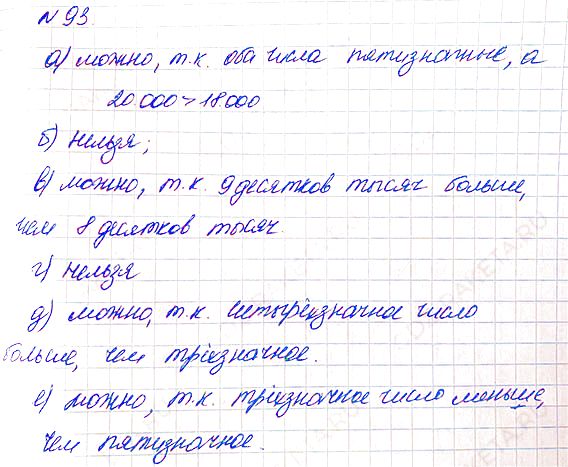 № 93
а) можно, т.к. оба числа пятизначные, а
20 000 > 18 000
б) нельзя;
в) можно, т.к. 9 десятков тысяч больше,
чем 8 десятков тысяч.
г) нельзя
д) можно, т.к. четырёхзначное число
больше, чем трёхзначное.
е) можно, т.к. трёхзначное число меньше,
чем пятизначное.